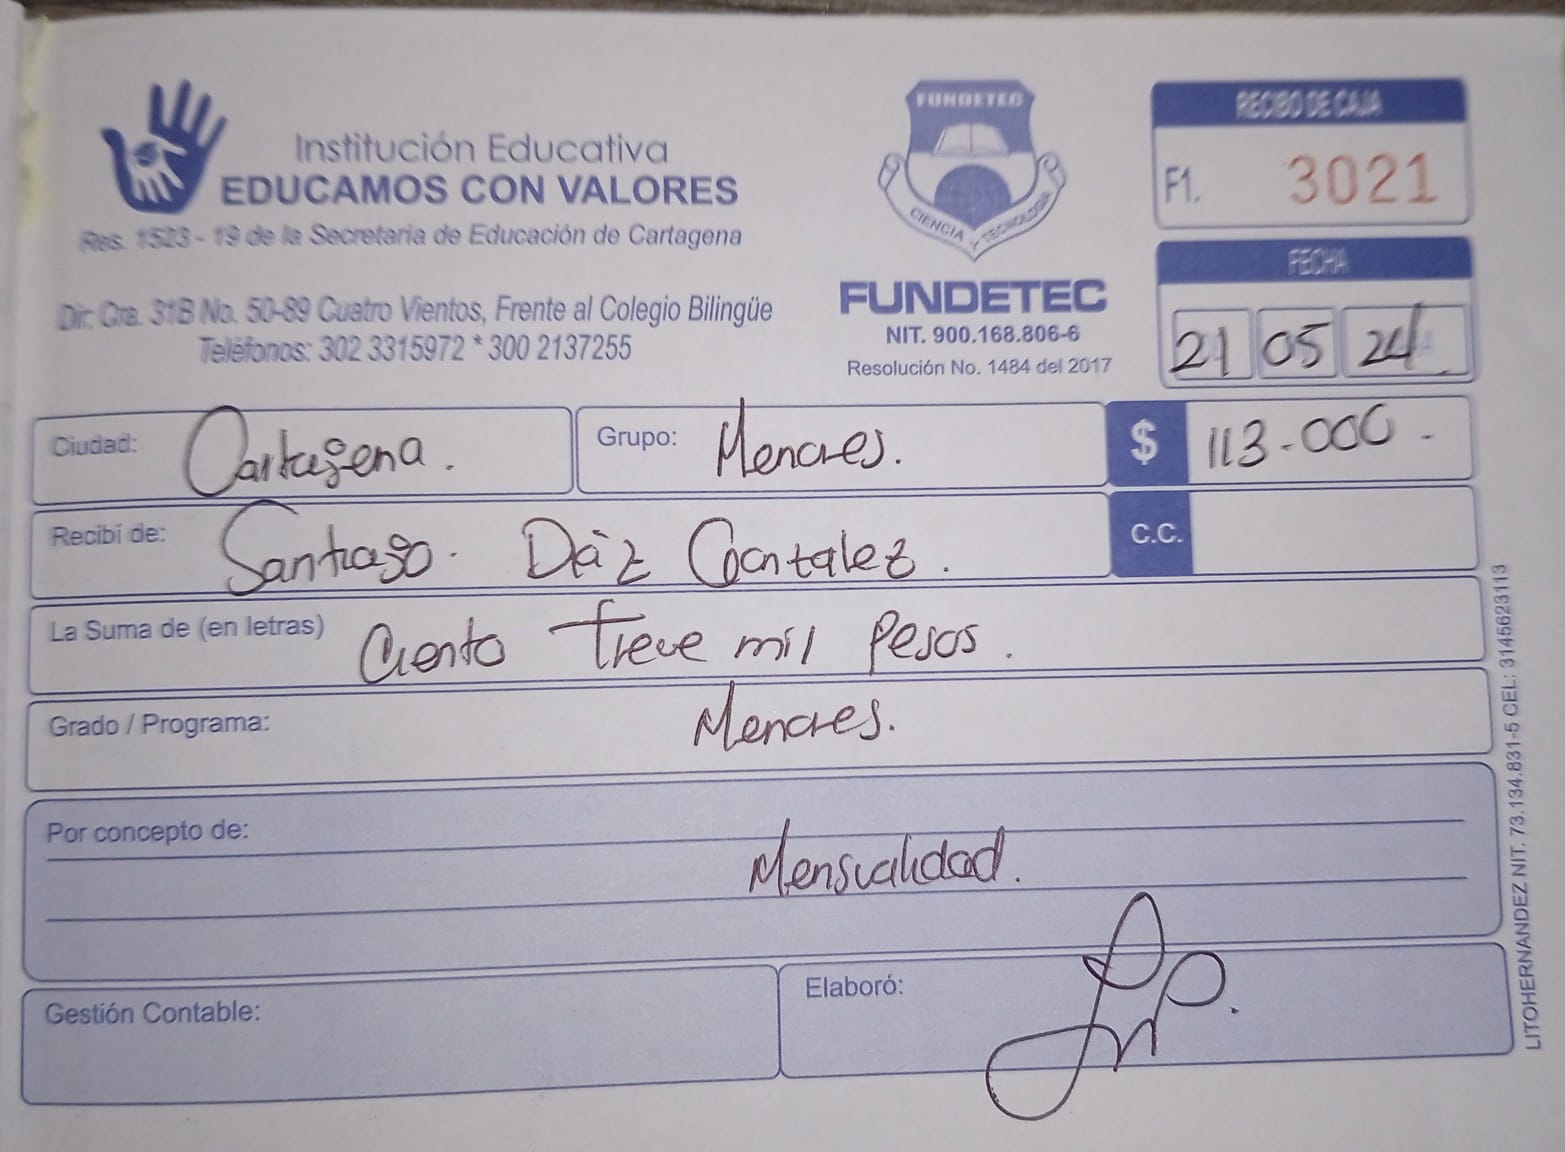 Institución Educativa
EDUCAMOS CON VALORES
Res. 1523 - 19 de la Secretaría de Educación de Cartagena
Dir: Cra. 31B No. 50-89 Cuatro Vientos, Frente al Colegio Bilingüe
Teléfonos: 302 3315972 * 300 2137255
FUNDETEC
CIENCIA Y TECNOLOGIA
FUNDETEC
NIT. 900.168.806-6
Resolución No. 1484 del 2017
RECIBO DE CAJA
F1. 3021
FECHA
21 05 24
Ciudad: Cartagena. Grupo: Menores. $ 113-000-
Recibí de: Santiago. Díaz Gonzalez. C.C.
La Suma de (en letras) Ciento Trece mil Pesos.
Grado / Programa: Menores.
Por concepto de:
Mensualidad.
Gestión Contable: Elaboró:
LITOHERNANDEZ NIT. 73.134.831-5 CEL: 3145623113